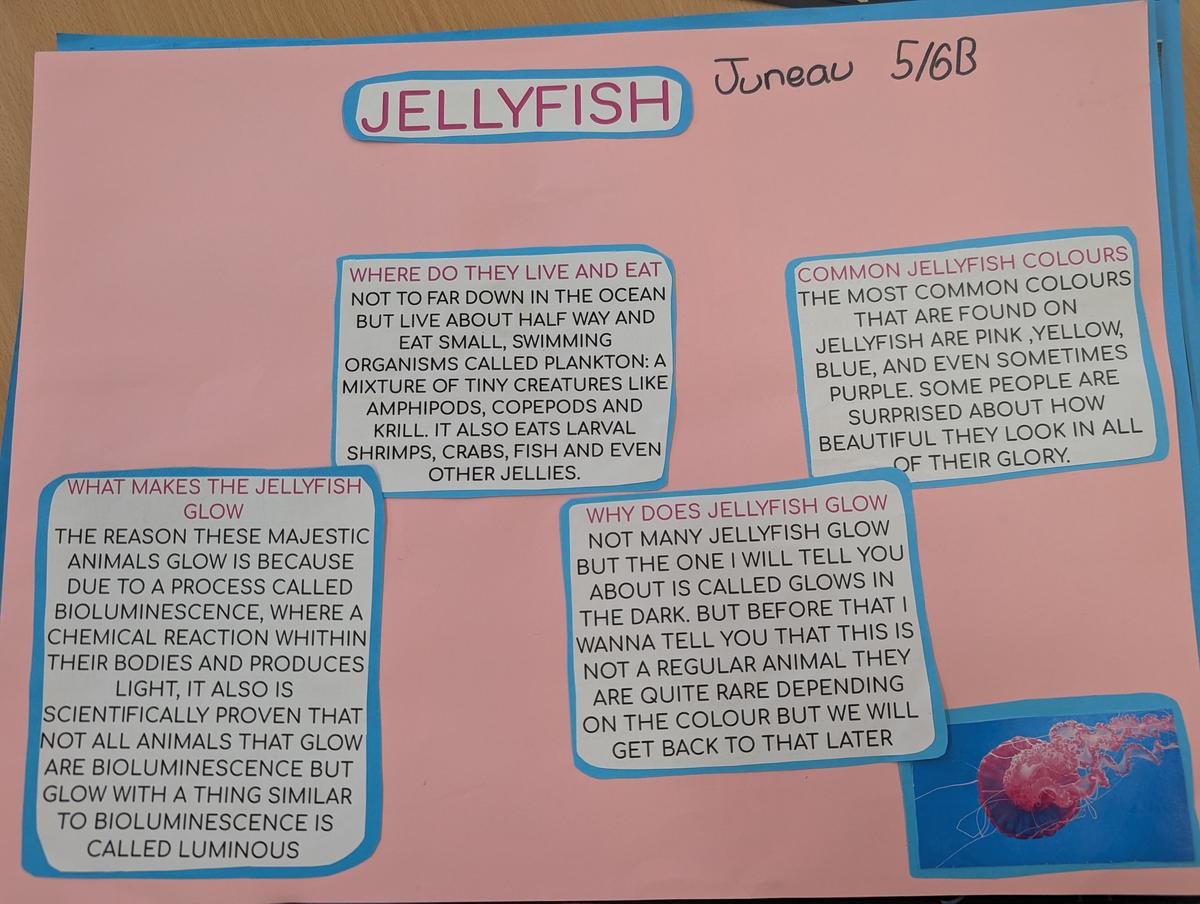 JELLYFISH
Juneau 5/6B
WHERE DO THEY LIVE AND EAT
NOT TO FAR DOWN IN THE OCEAN
BUT LIVE ABOUT HALF WAY AND
EAT SMALL, SWIMMING
ORGANISMS CALLED PLANKTON: A
MIXTURE OF TINY CREATURES LIKE
AMPHIPODS, COPEPODS AND
KRILL. IT ALSO EATS LARVAL
SHRIMPS, CRABS, FISH AND EVEN
OTHER JELLIES.
COMMON JELLYFISH COLOURS
THE MOST COMMON COLOURS
THAT ARE FOUND ON
JELLYFISH ARE PINK ,YELLOW,
BLUE, AND EVEN SOMETIMES
PURPLE. SOME PEOPLE ARE
SURPRISED ABOUT HOW
BEAUTIFUL THEY LOOK IN ALL
OF THEIR GLORY.
WHAT MAKES THE JELLYFISH
GLOW
THE REASON THESE MAJESTIC
ANIMALS GLOW IS BECAUSE
DUE TO A PROCESS CALLED
BIOLUMINESCENCE, WHERE A
CHEMICAL REACTION WHITHIN
THEIR BODIES AND PRODUCES
LIGHT, IT ALSO IS
SCIENTIFICALLY PROVEN THAT
NOT ALL ANIMALS THAT GLOW
ARE BIOLUMINESCENCE BUT
GLOW WITH A THING SIMILAR
TO BIOLUMINESCENCE IS
CALLED LUMINOUS
WHY DOES JELLYFISH GLOW
NOT MANY JELLYFISH GLOW
BUT THE ONE I WILL TELL YOU
ABOUT IS CALLED GLOWS IN
THE DARK. BUT BEFORE THAT I
WANNA TELL YOU THAT THIS IS
NOT A REGULAR ANIMAL THEY
ARE QUITE RARE DEPENDING
ON THE COLOUR BUT WE WILL
GET BACK TO THAT LATER